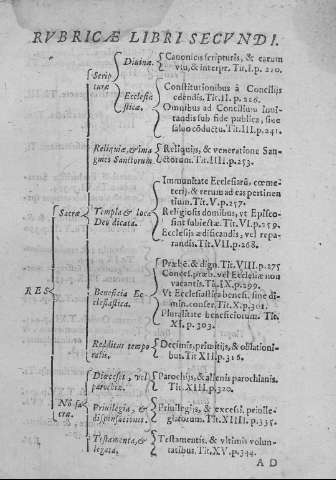 RVBRICÆ LIBRI SECVNDI.
Diuinæ.
Canonicis scripturis, & earum
vsu, & interpr. Tit. I. p. 210.
Scrip
turæ
Ecclesia
sticæ.
Constitutionibus à Concilijs
edendis. Tit. II. p. 226.
Omnibus ad Concilium inui-
tandis sub fide publica, siue
saluo cōductu. Tit. III. p. 241.
Reliquiæ, & ima
gines Sanctorum
Reliquijs, & veneratione San-
ctorum. Tit. IIII. p. 253.
RES
Sacræ
Templa & loca
Deo dicata.
Immunitate Ecclesiarū, cœme-
terij, & rerum ad eas pertinen
tium. Tit. V. p. 257.
Religiosis domibus, vt Episco-
po subiectæ. Tit. VI. p. 259.
Ecclesijs ædificandis, vel repa-
randis. Tit. VII. p. 268.
Beneficia Ec
clesiastica.
Præbē. & dign. Tit. VIII. p. 275
Conces. præb. vel Ecclesiæ non
vacantis. Tit. IX. p. 299.
Vt Ecclesiastica benef. sine di-
min. confer. Tit. X. p. 301.
Pluralitate beneficiorum. Tit.
XI. p. 303.
Redditus tempo
ralis.
Decimis, primitijs, & oblationi-
bus. Tit XII. p. 316.
Nō sa-
cræ.
Diœcesis, vel
parochiæ.
Parochijs, & alienis parochianis.
Tit. XIII. p. 320.
Priuilegia, &
dispensationes.
Priuilegijs, & excess. priuile-
giatorum. Tit. XIIII. p. 335.
Testamenta, &
legata.
Testamentis. & vltimis volun-
tatibus. Tit. XV. p. 344.
A D